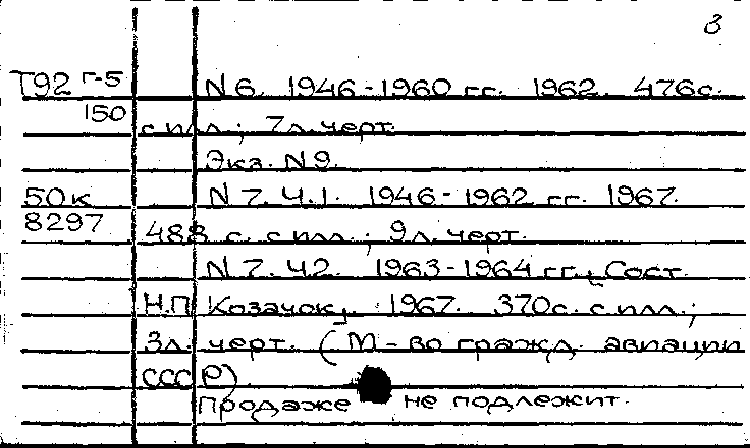 3
Т92 г-5 N 6. 1946-1960 гг. 1962. 476с.
150 с илл.; 7л. черт.
Экз. N 9.
50к N 7. Ч.1. 1946-1962 гг. 1967.
8297 488 с. с илл.; 9л. черт.
N 7. Ч.2. 1963-1964 гг. Сост.
Н.П. Козачок. 1967. 370с. с илл.;
3л. черт. (М-во гражд. авиации
СССР)
Продаже не подлежит.